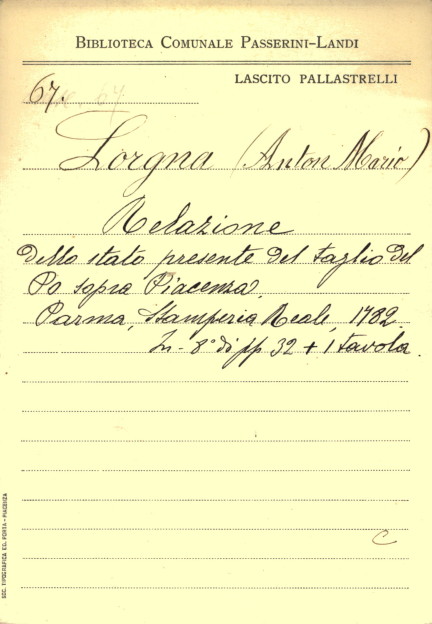 BIBLIOTECA COMUNALE PASSERINI-LANDI
LASCITO PALLASTRELLI
67.
Lorgna (Anton Mario)
Relazione
dello stato presente del taglio del
Po sopra Piacenza.
Parma, Stamperia Reale, 1782.
In-8° di pp 32 + 1 tavola.
C
SOC. TIPOGRAFICA ED. PORTA - PIACENZA